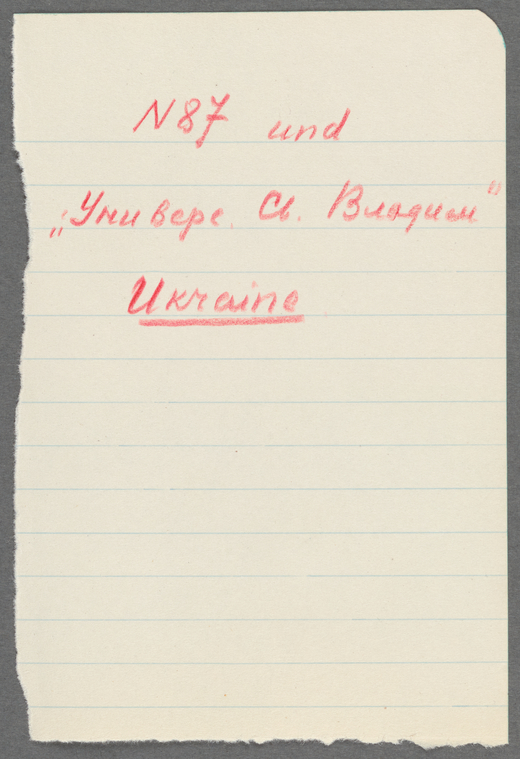 N87 und
„Универс. Св. Владим"
Ukraine